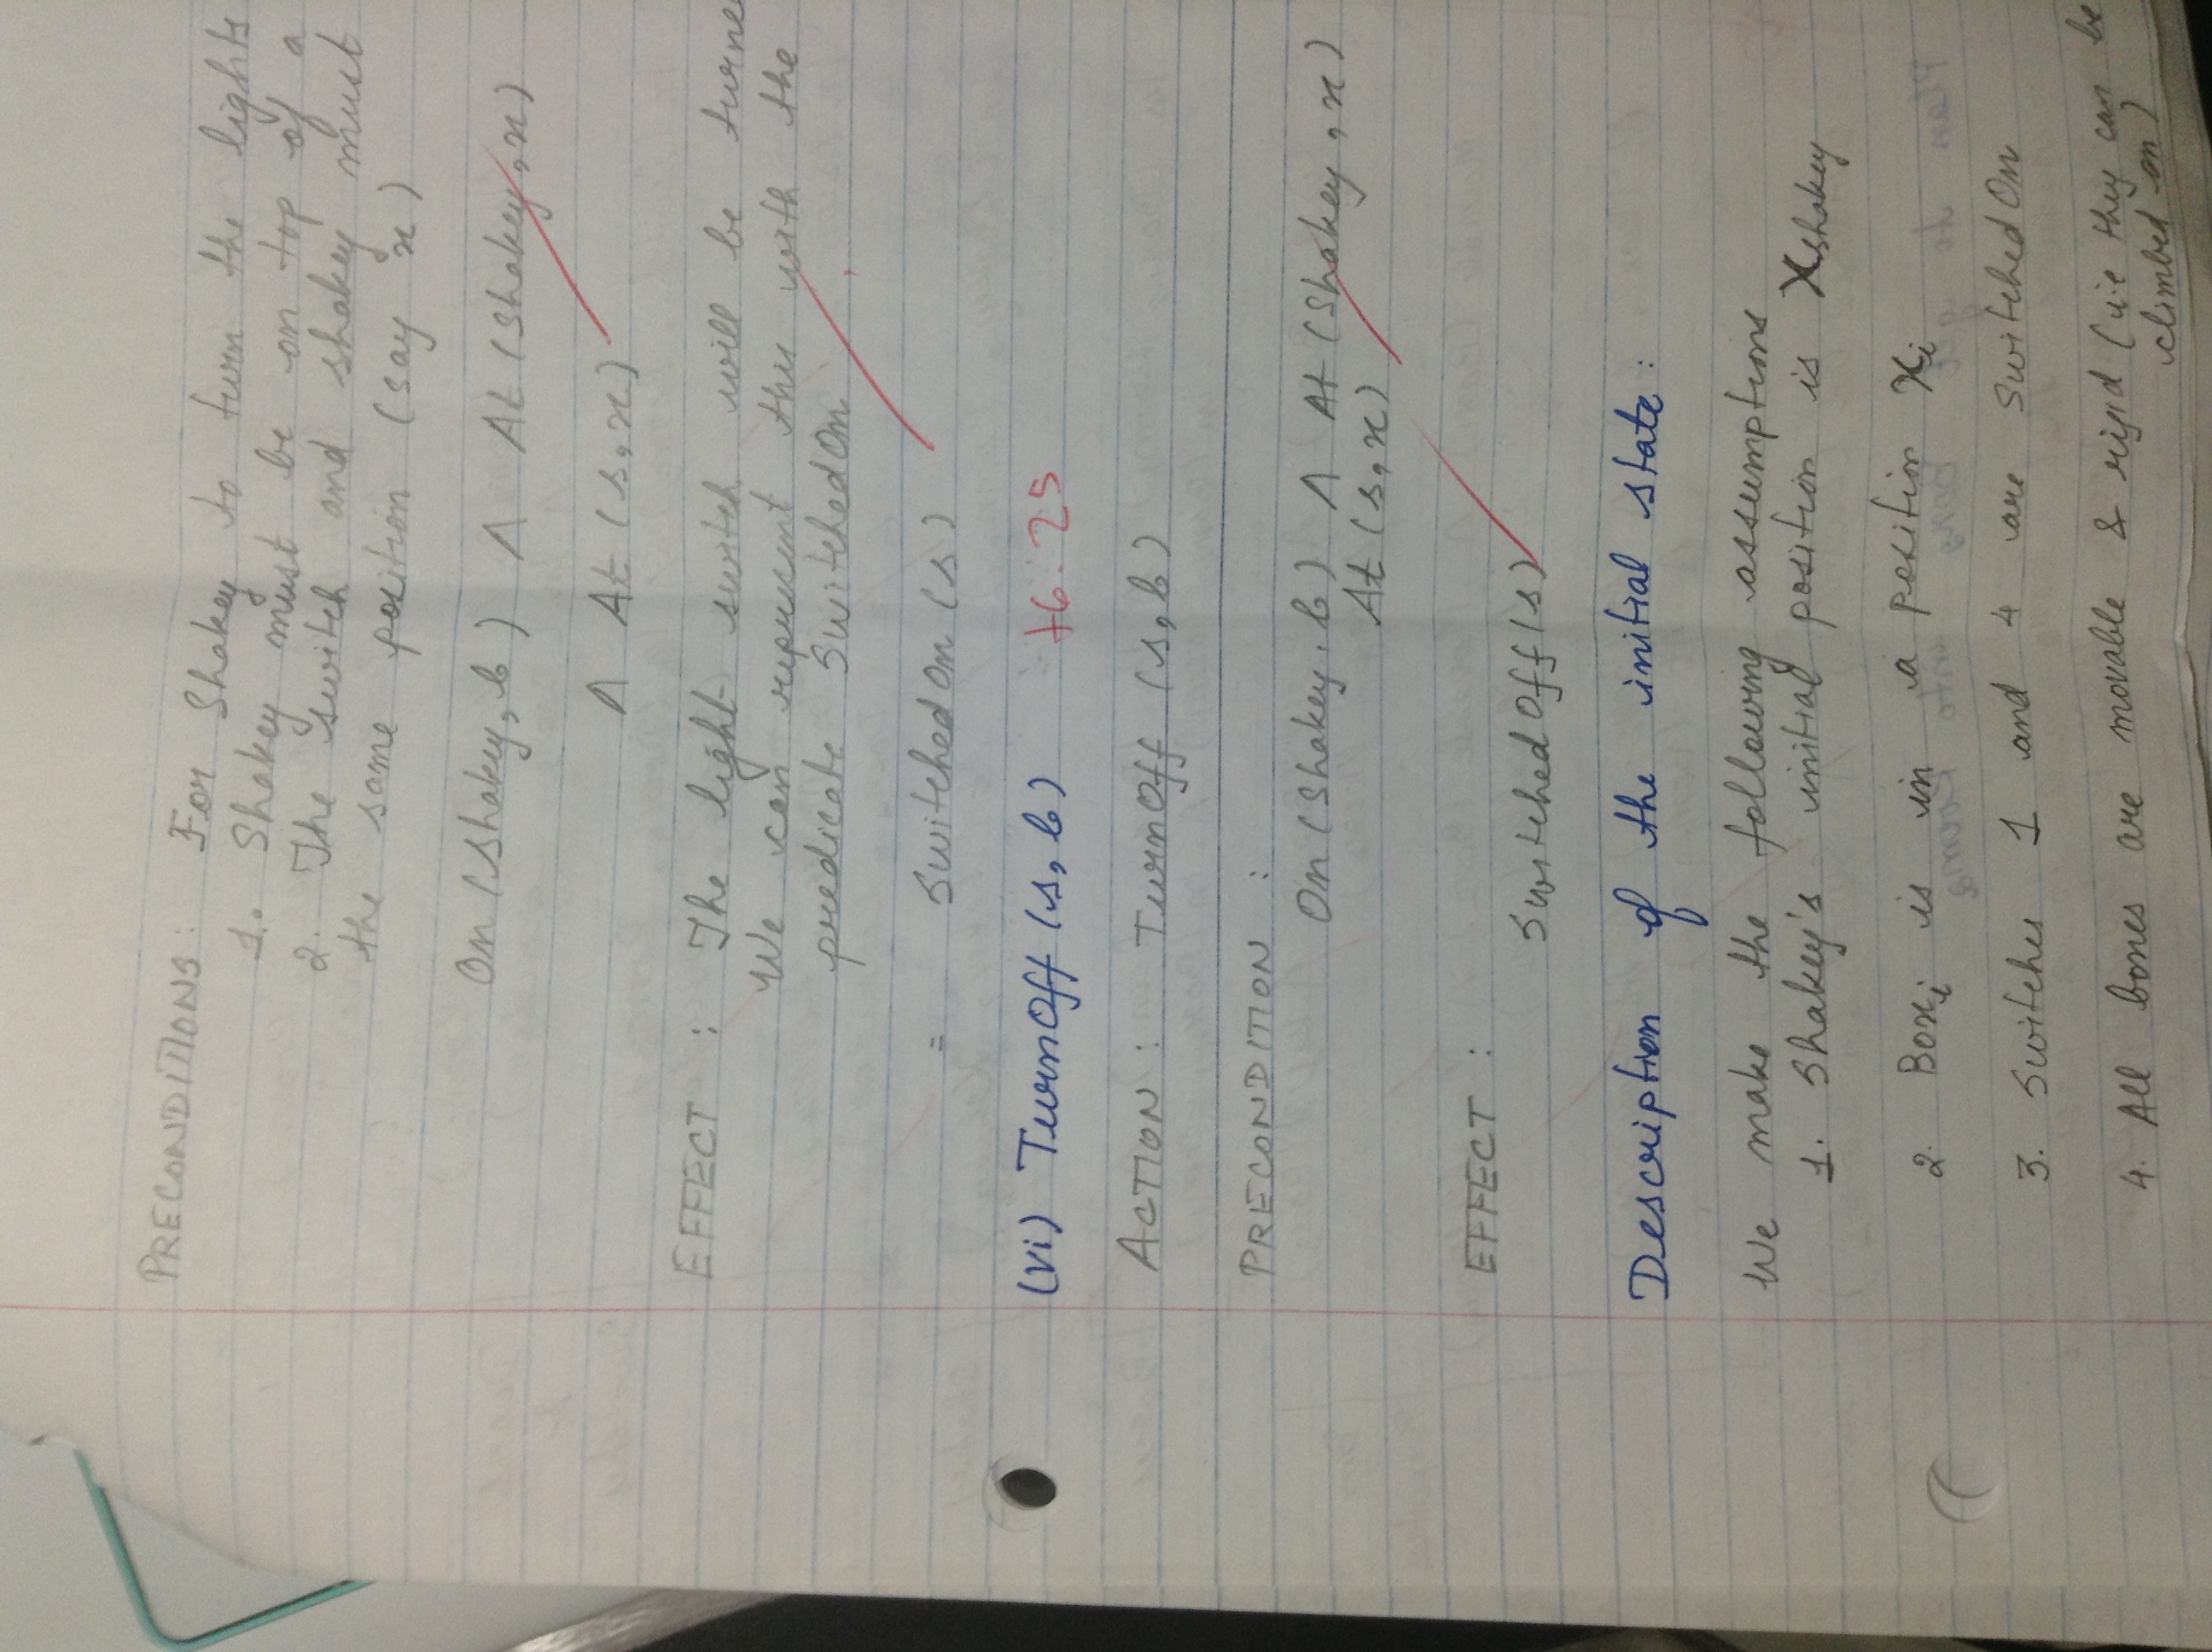 PRECONDITIONS : For Shakey to turn the lights
1. Shakey must be on top of a
2. The switch and shakey must
the same position (say x)
On (Shakey, b) ∧ At (Shakey, x)
∧ At (s, x)
EFFECT : The light switch will be turne
We can represent this with the
predicate SwitchedOn
= SwitchedOn (s)
(vi) TurnOff (s, b) +6.25
ACTION : TurnOff (s, b)
PRECONDITION :
On (Shakey, b) ∧ At (Shakey, x)
At (s, x)
EFFECT :
SwitchedOff (s)
Description of the initial state :
We make the following assumptions
1. Shakey's initial position is Xshakey
2. Boxi is in a position xi
3. Switches 1 and 4 are SwitchedOn
4. All boxes are movable & rigid (i.e they can be
climbed on)